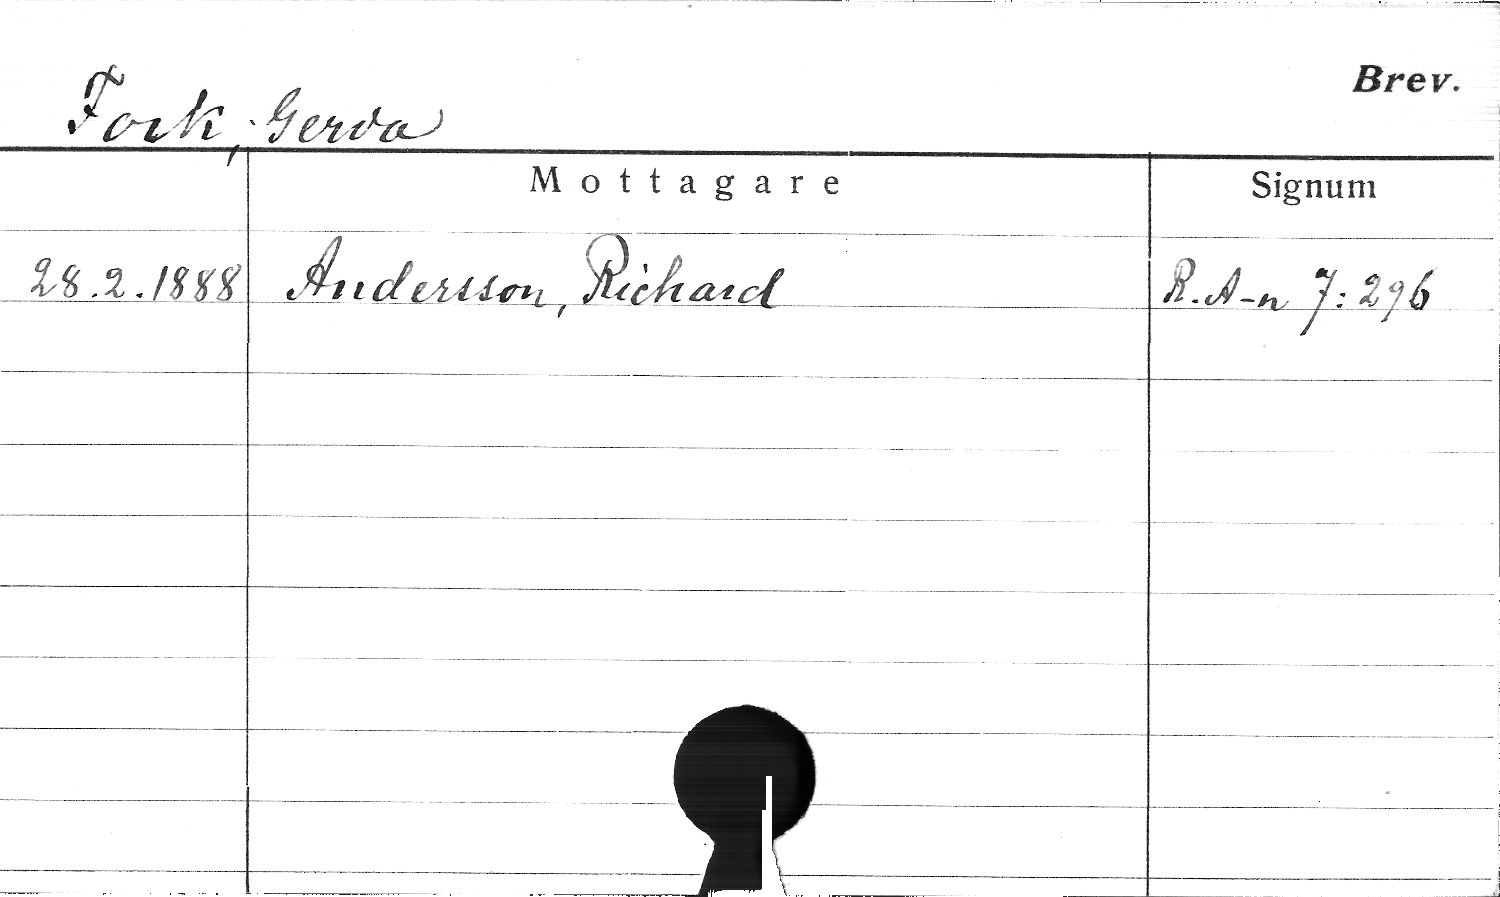 Brev.
Fork, Gerda
Mottagare
Signum
28.2.1888 Andersson, Richard R. A-n 7:296